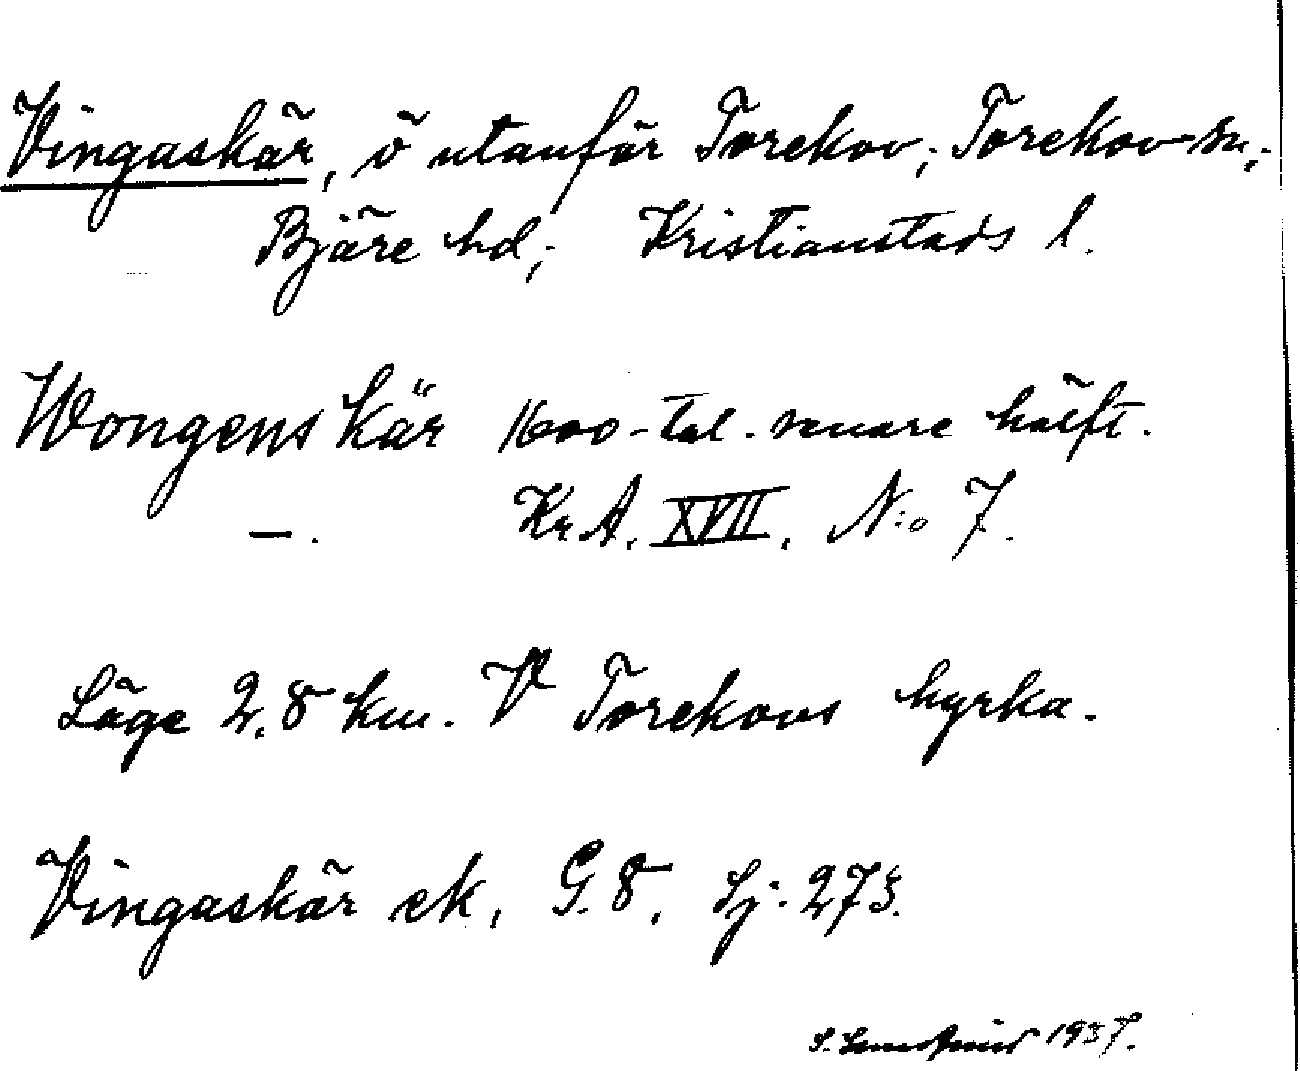 Vingaskär, ö utanför Torekov; Torekov sn;
Bjäre hd; Kristianstads l.
Wongens kär 1600-tal. senare hälft.
—. Kr.A. XVII. N:o 7.
Läge 2,8 km. V Torekovs kyrka.
Vingaskär ek. G. 8. Lj: 273.
1937.